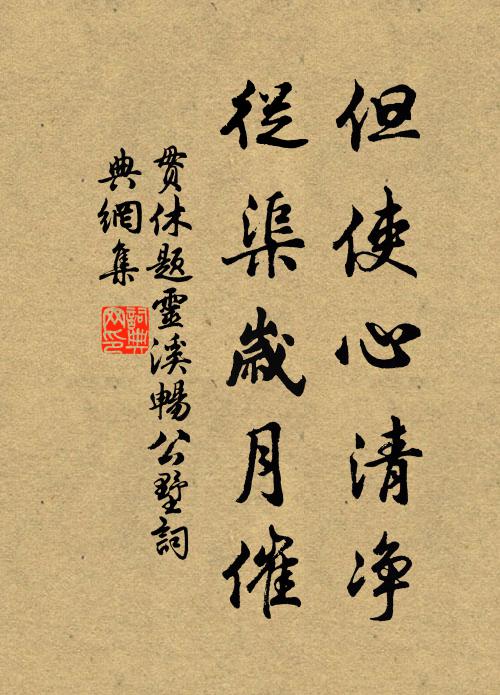 但使心清净
從渠歲月催
貫休題靈溪暢公墅詞
典網集
詞典
网印